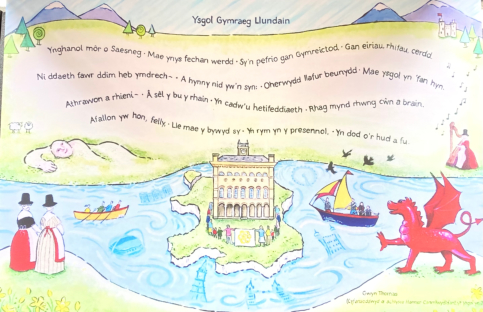 Ysgol Gymraeg Llundain
Ynghanol môr o Saesneg · Mae ynys fechan werdd · Sy'n pefrio gan Gymreictod · Gan eiriau, rhifau, cerdd.
Ni ddaeth fawr ddim heb ymdrech~ · A hynny nid yw'n syn: · Oherwydd llafur beunydd · Mae ysgol yn 'fan hyn.
Athrawon a rhieni~ · Â sêl y bu y rhain · Yn cadw'u hetifeddiaeth · Rhag mynd rhwng cŵn a brain.
Afallon yw hon, felly, · Lle mae y bywyd sy · Yn rym yn y presennol, · Yn dod o'r hud a fu.
Gwyn Thomas